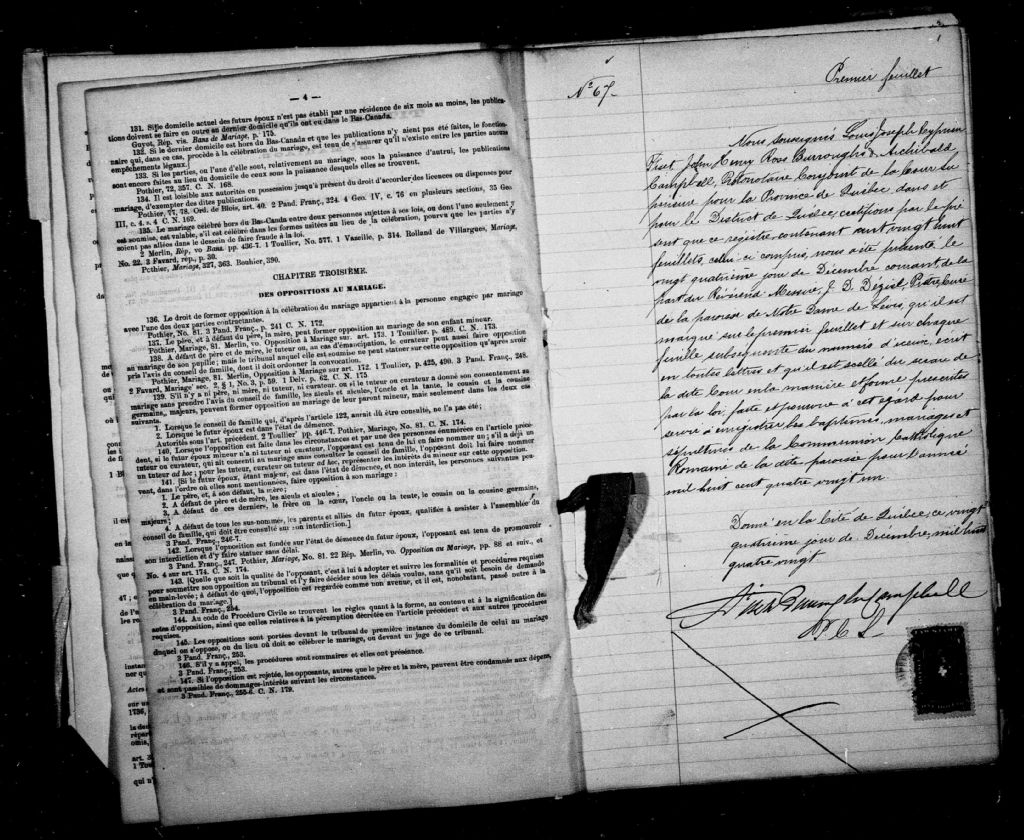 — 4 —
131. Si le domicile actuel des futurs époux n'est pas établi par une résidence de six mois au moins, les publica-
tions doivent se faire en outre au dernier domicile qu'ils ont eu dans le Bas-Canada.
Guyot, Rép. vis. Bans de Mariage, p. 175.
132. Si le dernier domicile est hors du Bas-Canada et que les publications n'y aient pas été faites, le fonction-
naire qui, dans ce cas, procède à la célébration du mariage, est tenu de s'assurer qu'il n'existe entre les parties aucuns
empêchements légaux.
133. Si les parties, ou l'une d'elles, sont, relativement au mariage, sous la puissance d'autrui, les publications
sont encore faites au lieu du domicile de ceux sous la puissance desquels elles se trouvent.
Pothier, 72, 357. C. N. 168.
134. Il est loisible aux autorités en possession jusqu'à présent du droit d'accorder des licences ou dispenses pour
mariage, d'exempter des dites publications.
Pothier, 77, 78. Ord. de Blois, art. 40. 2 Pand. Franç., 324. 4 Geo. IV, c. 76 en plusieurs sections, 35 Geo.
III, c. 4. s. 4 C. N. 169.
135. Le mariage célébré hors du Bas-Canada entre deux personnes sujettes à ses lois, ou dont l'une seulement y
est soumise, est valable, s'il est célébré dans les formes usitées au lieu de la célébration, pourvu que les parties n'y
soient pas allées dans le dessein de faire fraude à la loi.
2 Merlin, Rép, vo Bans, pp. 436-7. 1 Toullier, No. 577. 1 Vazeille, p. 314. Rolland de Villargues, Mariage,
No. 22. 3 Favard, rép., p. 30.
Pothier, Mariage, 327, 363. Bouhier, 390.
CHAPITRE TROISIÈME.
DES OPPOSITIONS AU MARIAGE.
136. Le droit de former opposition à la célébration du mariage appartient à la personne engagée par mariage
avec l'une des deux parties contractantes.
Pothier, No. 81. 3 Pand. Franç., p. 241 C. N. 172.
137. Le père, et à défaut du père, la mère, peut former opposition au mariage de son enfant mineur.
Pothier, Mariage, 81. Merlin, vo. Opposition à Mariage sur. art. 173. 1 Toullier, p. 489. C. N. 173.
138. A défaut de père et de mère, le tuteur ou, au cas d'émancipation, le curateur peut aussi faire opposition
au mariage de son pupille; mais le tribunal auquel elle est soumise ne peut statuer sur cette opposition qu'après avoir
pris l'avis du conseil de famille, dont il doit ordonner la convocation.
Pothier, Mariage, 81. Merlin, Opposition à Mariage sur art. 172. 1 Toullier, p. 425, 490. 3 Pand. Franç., 248.
2 Favard, Mariage, sec. 2, § 1, No. 3, p. 59. 1 Delv. p. 62. C. N. 175.
139. S'il n'y a ni père, ni mère, ni tuteur, ni curateur, ou si le tuteur ou curateur a donné son consentement au
mariage sans prendre l'avis du conseil de famille, les aïeuls et aïeules, l'oncle et la tante, le cousin et la cousine
germains, majeurs, peuvent former opposition au mariage de leur parent mineur, mais seulement dans les deux cas
suivants.
1. Lorsque le conseil de famille qui, d'après l'article 122, aurait dû être consulté, ne l'a pas été;
2. Lorsque le futur époux est dans l'état de démence.
Autorités sous l'art. précédent. 2 Toullier pp. 446-7. Pothier, Mariage, No. 81. C. N. 174.
140. Lorsque l'opposition est faite dans les circonstances et par une des personnes énumérées en l'article précé-
dent, si le futur époux mineur n'a ni tuteur ni curateur, l'opposant est tenu de lui en faire nommer un; s'il a déjà un
tuteur ou curateur, qui ait consenti au mariage sans consulter le conseil de famille, l'opposant doit lui faire nommer
un tuteur ad hoc; pour les tuteur, curateur ou tuteur ad hoc, représenter les intérêts du mineur sur cette opposition.
141. [Si le futur époux, étant majeur, est dans l'état de démence, et non interdit, les personnes suivantes peu-
vent, dans l'ordre où elles sont mentionnées, faire opposition à son mariage:
1. Le père, et, à son défaut, la mère;
2. A défaut de père et de mère, les aïeuls et aïeules;
3. A défaut de ces derniers, le frère ou la sœur, l'oncle ou la tante, le cousin ou la cousine germains,
majeurs;
4. A défaut de tous les sus-nommés, les parents et alliés du futur époux, qualifiés à assister à l'assemblée du
conseil de famille, qui doit être consulté sur son interdiction.]
3 Pand. Franç., 246-7.
142. Lorsque l'opposition est fondée sur l'état de démence du futur époux, l'opposant est tenu de promouvoir
son interdiction et d'y faire statuer sans délai.
3 Pand. Franç., 247. Pothier, Mariage, No. 81. 22 Rép. Merlin, vo. Opposition au Mariage, pp. 88 et suiv., et
No. 4 sur art. 174. C. N. 174.
143. [Quelle que soit la qualité de l'opposant, c'est à lui à adopter et suivre les formalités et procédures requises
pour soumettre son opposition au tribunal et l'y faire décider sous les délais voulus, sans qu'il soit besoin de demande
en main-levée; à défaut de quoi, l'opposition est regardée comme non avenue, et il est, nonobstant, passé outre à la
célébration du mariage.]
3 Pand. Franç., 254.
144. Au code de Procédure Civile se trouvent les règles quant à la forme, au contenu et à la signification des
actes d'opposition, ainsi que celles relatives à la péremption décrétée en l'article précédent et aux autres procédures
requises.
145. Les oppositions sont portées devant le tribunal de première instance du domicile de celui au mariage
duquel on s'oppose, ou du lieu où doit se célébrer le mariage, ou devant un juge de ce tribunal.
3 Pand. Franç., 253.
146. S'il y a appel, les procédures sont sommaires et elles ont préséance.
3 Pand. Franç., 253.
147. Si l'opposition est rejetée, les opposants, autres que le père et la mère, peuvent être condamnés aux dépens,
et sont passibles de dommages-intérêts suivant les circonstances.
3 Pand. Franç., 255-6. C. N. 179.
No 67-
1
Premier feuillet
Nous soussignés Louis Joseph Cyprien
Fiset, John Henry Rose Burroughs & Archibald
Campbell, Protonotaire Conjoint de la Cour Su
périeure pour la Province de Québec, dans et
pour le District de Québec, certifions par le pré
sent que ce registre, contenant cent vingt huit
feuillets, celui-ci compris, nous a été présenté le
vingt quatrième jour de Décembre courant, de la
part du Révérend Messire J. D. Déziel, Prêtre Curé
de la paroisse de Notre Dame de Levis, qu'il est
marqué sur le premier feuillet et sur chaque
feuillet subséquent du numéro d'icelui, écrit
en toutes lettres et qu'il est scellé du sceau de
la dite Cour en la manière et forme prescrites
par la loi, faite et pourvue à cet égard, pour
servir à enregistrer les baptêmes, mariages et
sépultures de la Communion Catholique
Romaine de la dite paroisse pour l'année
mil huit cent quatre vingt un
Donné en la Cité de Québec, ce vingt
quatrième jour de Décembre, mil huit cent
quatre vingt
Fiset Burroughs Campbell
P. C. S.